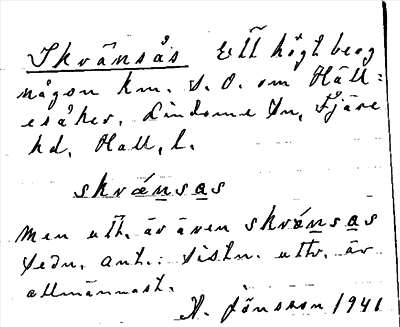 Skvänsås Ett högt berg
någon km. S. O. om Häll=
esåker, Lindome Sn, Fjäre
hd, Hall. l.
skvǽnsas
Men utt. är även skvǽnsas
Sedn. ant.: Sistn. uttr. är
allmännast.
A. Jönsson 1941